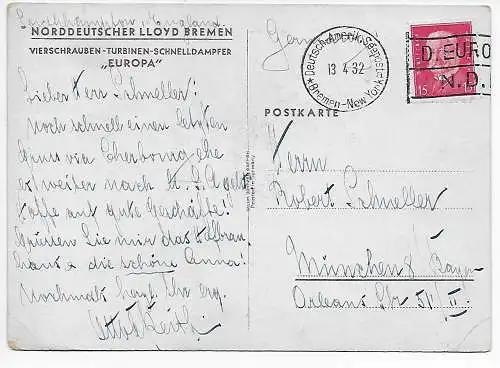 Southampton, England
NORDDEUTSCHER LLOYD BREMEN
VIERSCHRAUBEN-TURBINEN-SCHNELLDAMPFER
„EUROPA"
Lieber Herr Schneller!
Noch schnell einen letzten
Gruss via Cherbourg ehe
es weiter nach U.S.A geht
Hoffe auf gute Geschäfte!
Grüssen Sie mir das
& die schöne Anna!
Nochmals herzl. Ihr erg.
Germany
Deutsch-Amerik. Seepost
13 4 32
Bremen-New York
D. EURO
N.D.
15 15
POSTKARTE
Herrn
Robert Schneller
München 8 Bayern
Orleans Str 51/II